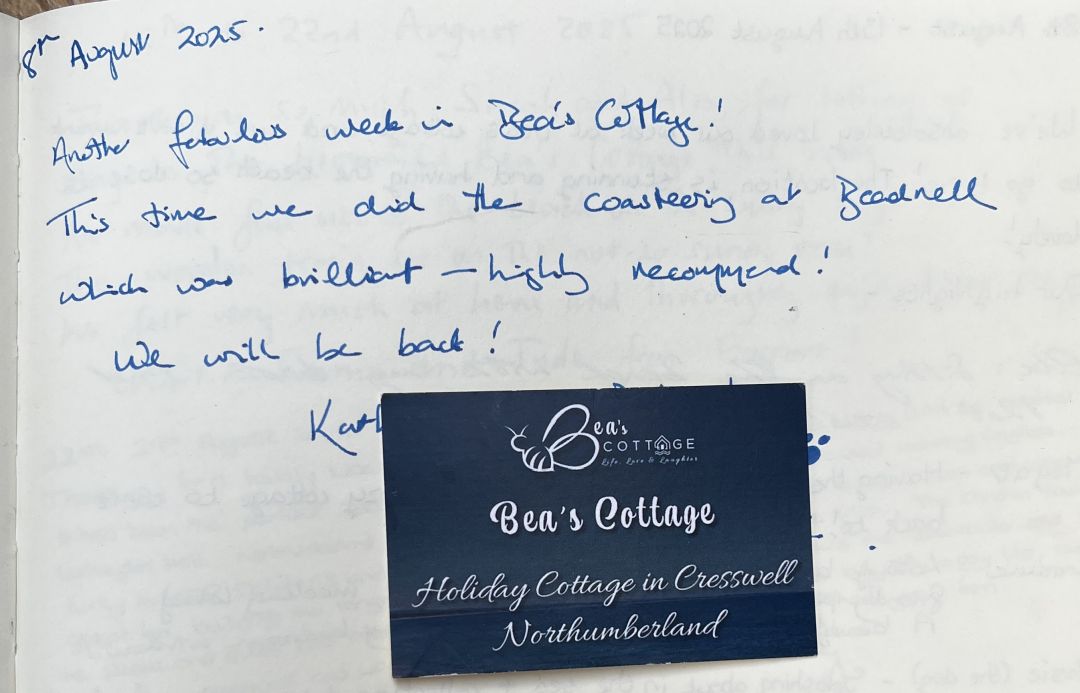 8th August 2025.
Another fabulous week in Bea's Cottage!
This time we did the coasteering at Beadnell
which was brilliant – highly recommend!
We will be back!
Kath
Bea's
COTTAGE
Life, Love & Laughter
Bea's Cottage
Holiday Cottage in Cresswell
Northumberland